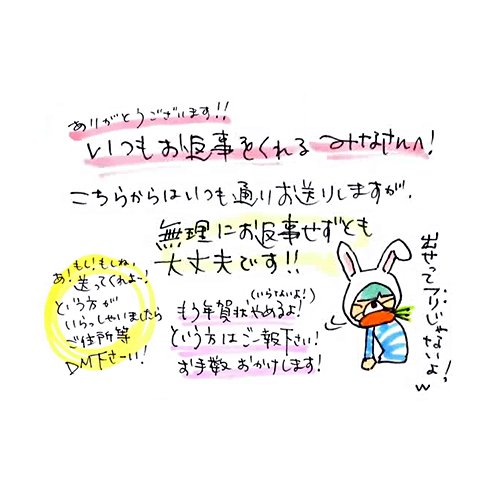 ありがとうございます!!
いつもお返事をくれる みなさんへ!
こちらからはいつも通りお送りしますが、
無理にお返事せずとも
大丈夫です!!
あ!もし!もしね、
送ってくれよ~!
という方が
いらっしゃいましたら
ご住所等
DM下さーい!
(いらないよ!)
もう年賀状やめるよ!
という方はご一報下さい!
お手数おかけします!
出せってフリじゃないよ!
w